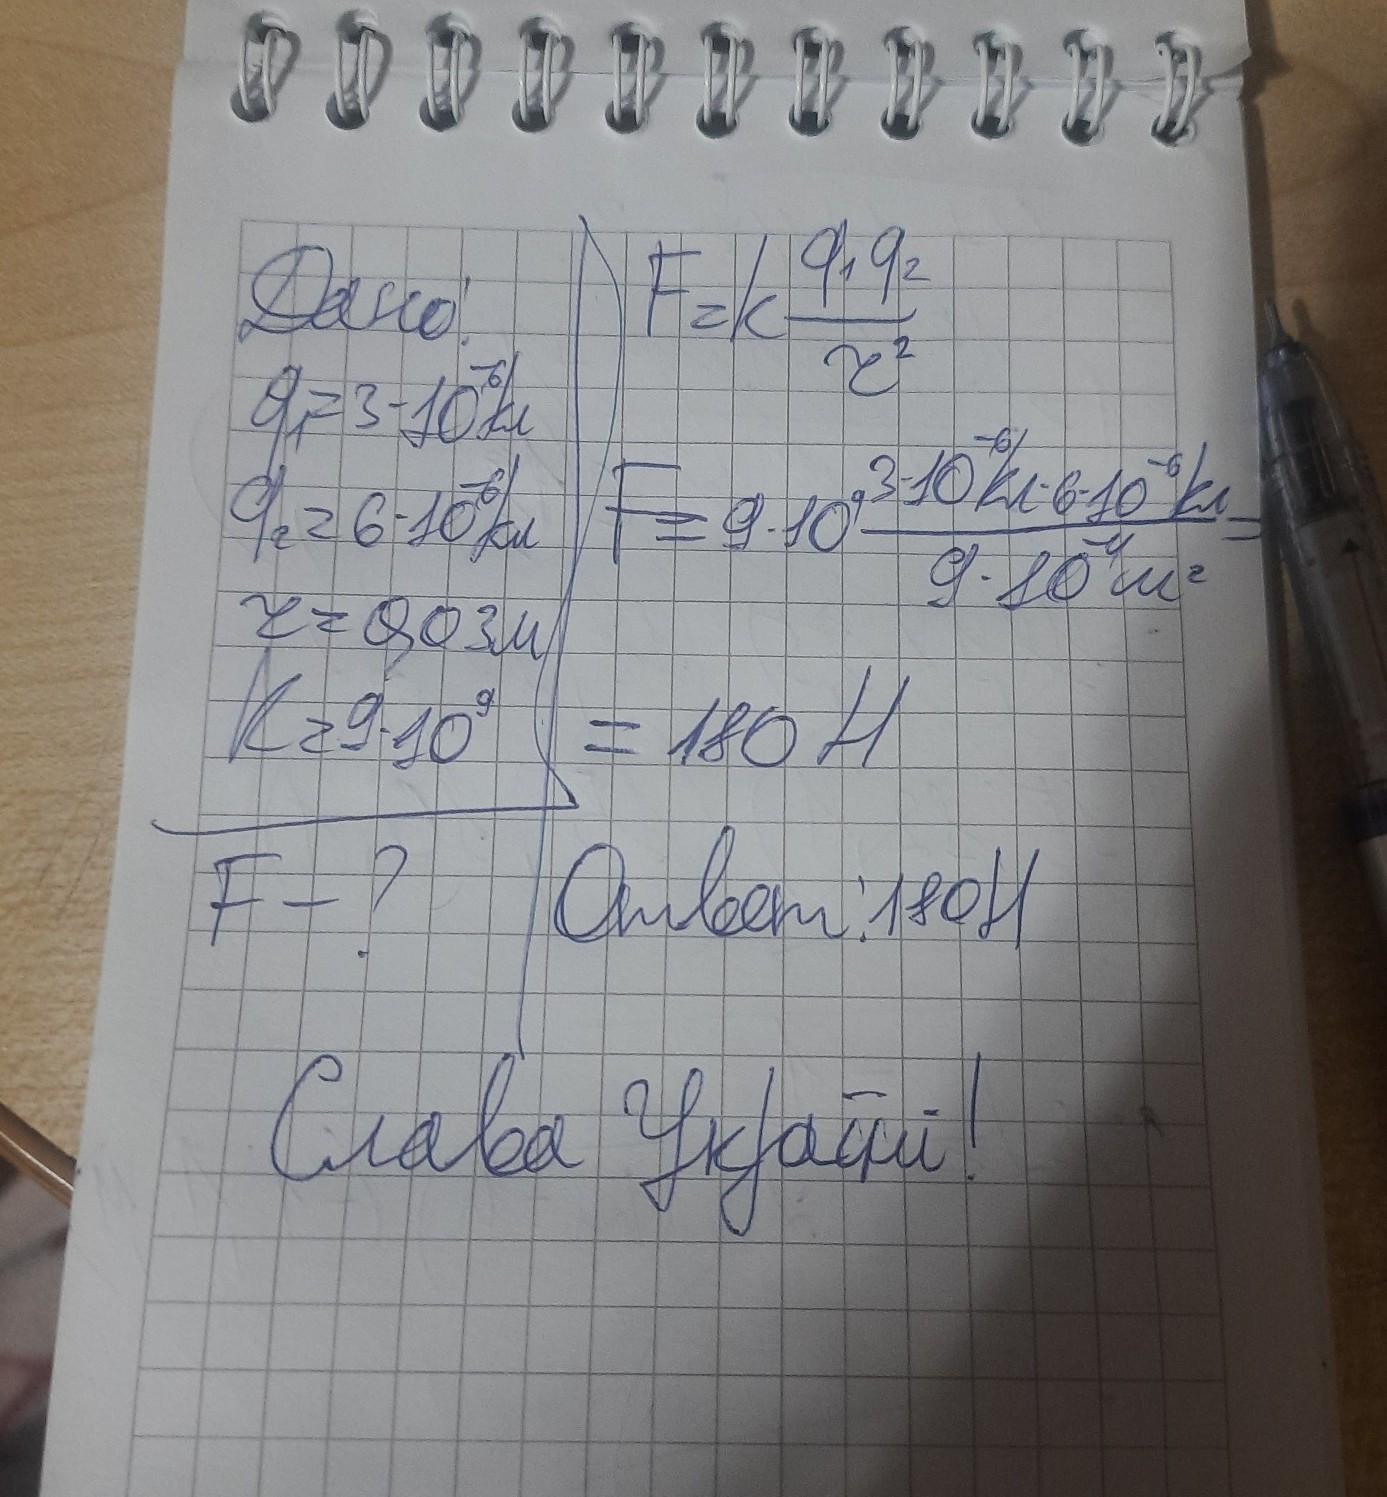 Дано:
q₁=3·10⁻⁶кл
q₂=6·10⁻⁶кл
r=0,03м
k=9·10⁹
F-?
F=k q₁q₂/r²
F=9·10⁹ 3·10⁻⁶кл·6·10⁻⁶кл/9·10⁻⁴м² =
= 180 Н
Ответ: 180Н
Слава Україні!